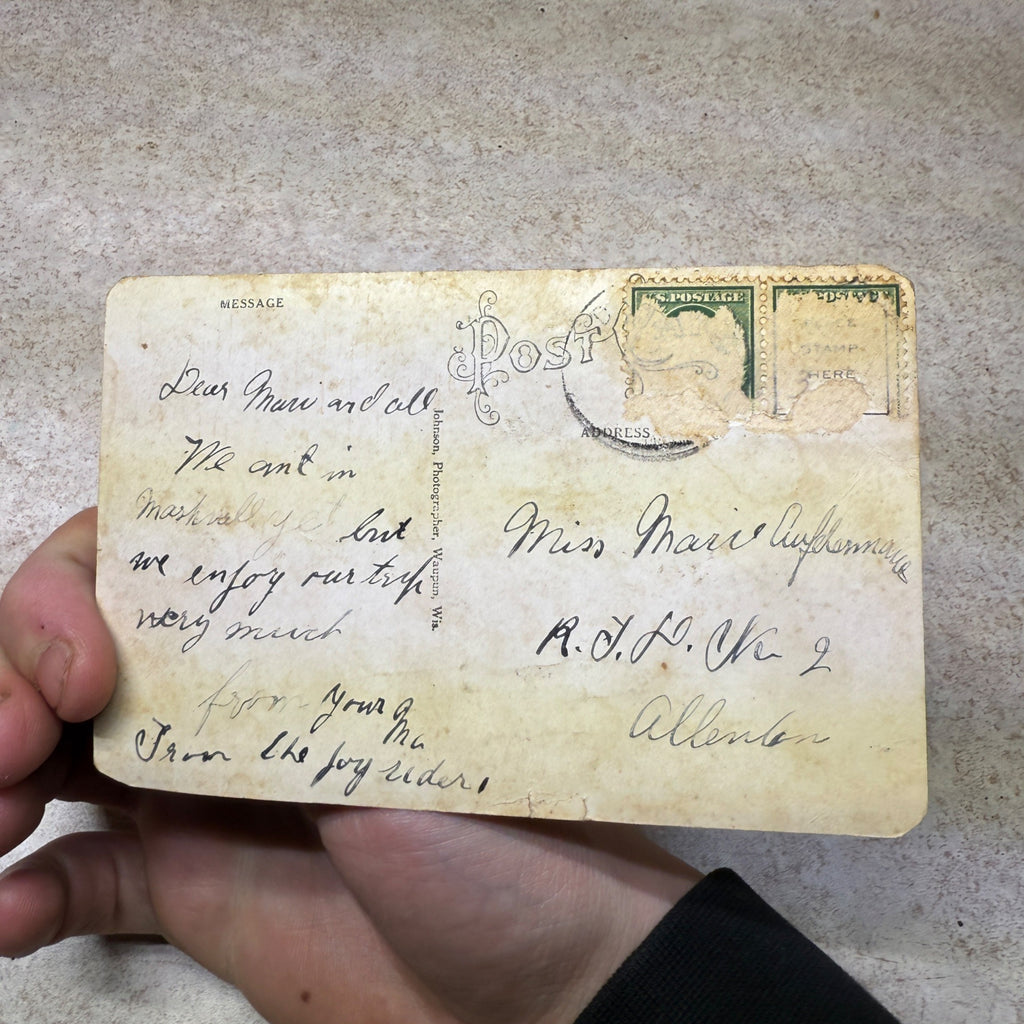 MESSAGE
POST
U.S. POSTAGE
STAMP
HERE
ADDRESS
Johnson, Photographer, Waupun, Wis.
Dear Mari and all
We ant in
but
we enjoy our trip
very much
from your Ma
From the Joy riders
Miss Marie
R.F.D. No 2
Allenton